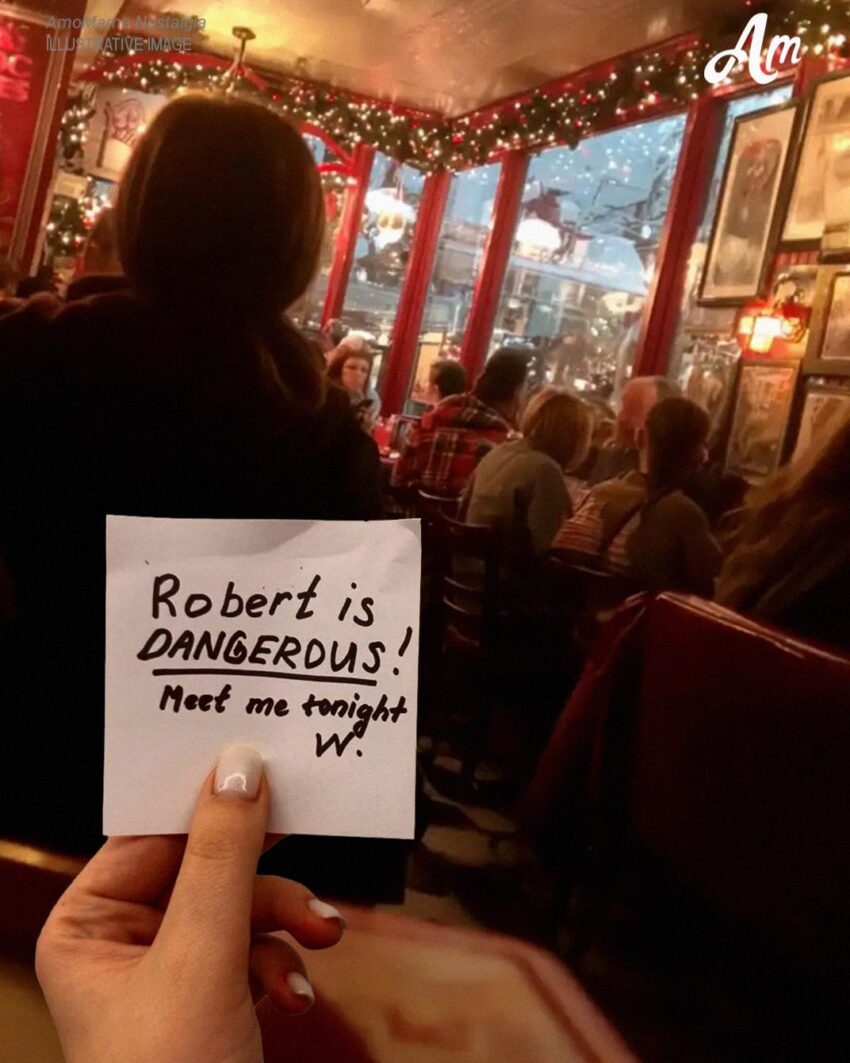 AmoMama Nostalgia
ILLUSTRATIVE IMAGE
Am
Robert is
DANGEROUS!
Meet me tonight
W.